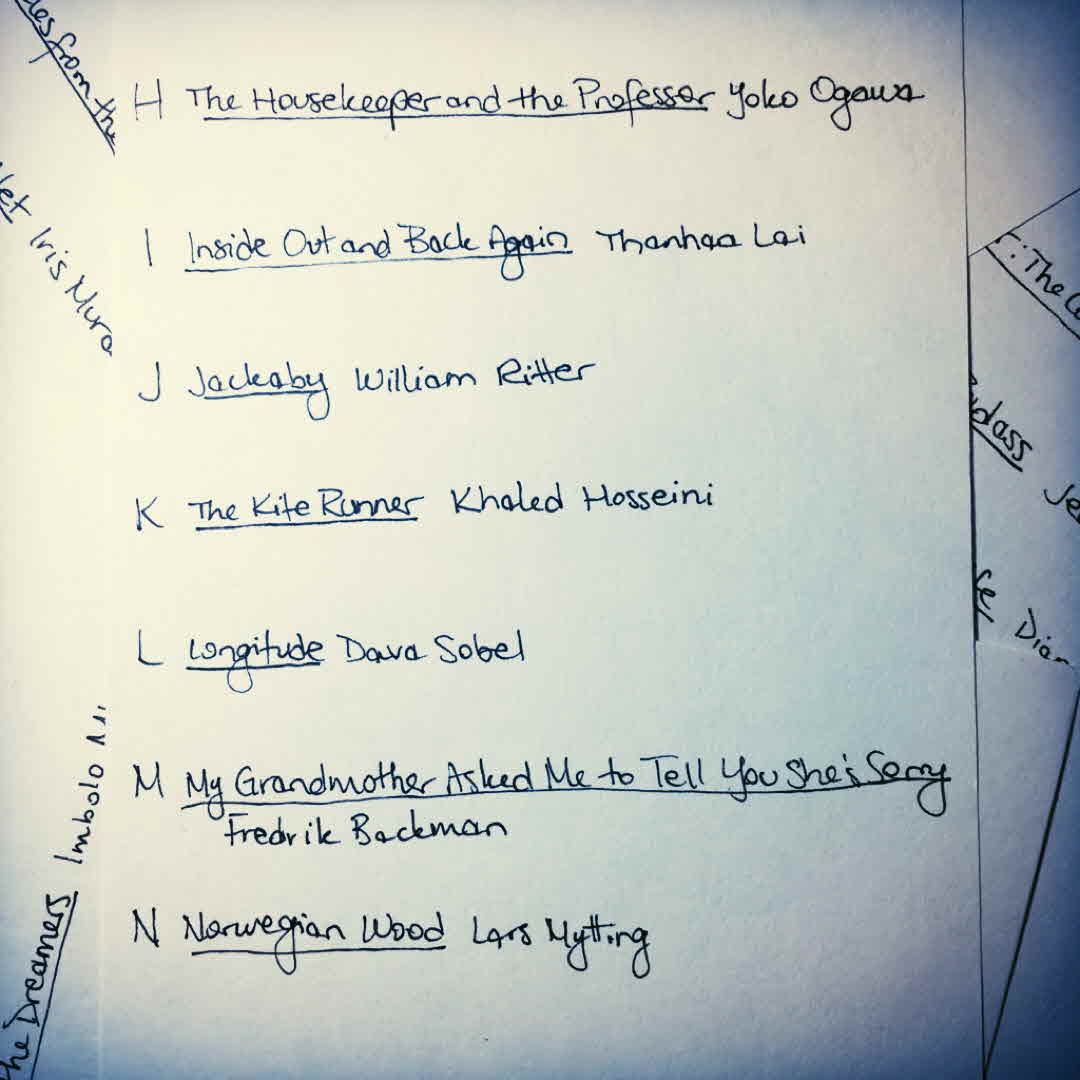 des from the
H The Housekeeper and the Professor Yoko Ogawa
Net Iris Murd
I Inside Out and Back Again Thanhaa Lai
: The
J Jackaby William Ritter
dass Je
K The Kite Runner Khaled Hosseini
L Longitude Dava Sobel
M My Grandmother Asked Me to Tell You She's Sorry
Fredrik Backman
N Norwegian Wood Lars Mytting
The Dreamers Imbolo